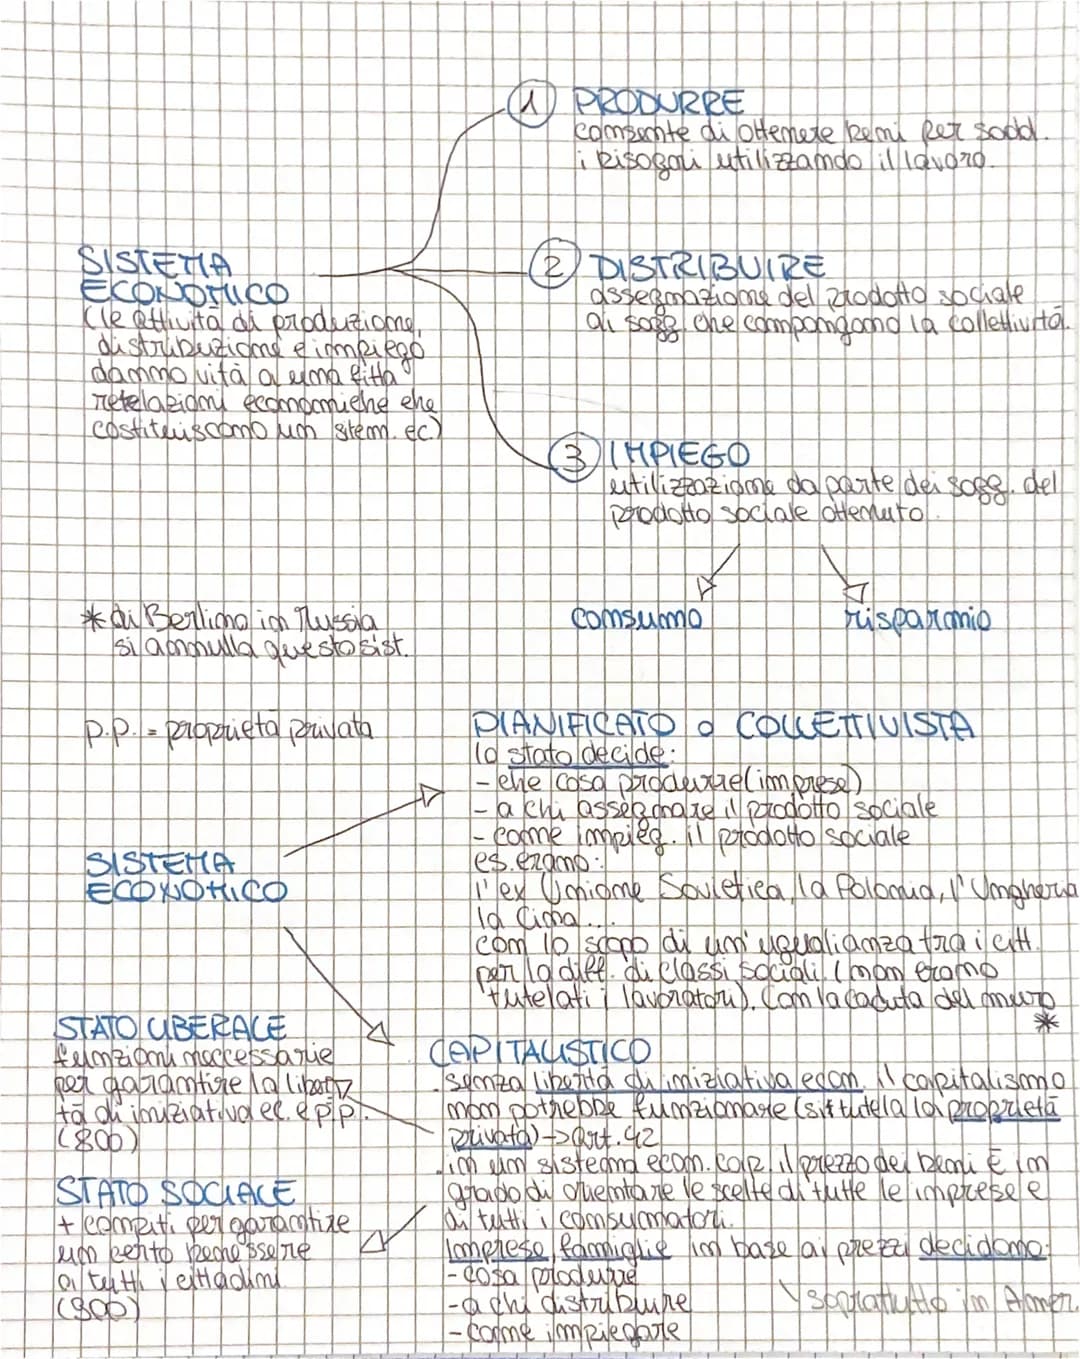 1 PRODURRE
comsente di ottenere beni per sodd.
i bisogni utilizzando il lavoro.
SISTEMA
ECONOMICO
(le attività di produzione,
distribuzione e impiego
danno vità a una fitta
retelazioni economiche che
costituiscono un sitem. ec.)
2 DISTRIBUIRE
assegnazione del prodotto sociale
ai sogg. che compongono la collettività.
3 IMPIEGO
utilizzazione da parte dei sogg. del
prodotto sociale ottenuto.
consumo
risparmio
* di Berlino in Russia
si annulla questo sist.
p.p. = proprietà privata
SISTEMA
ECONOMICO
PIANIFICATO o COLLETTIVISTA
lo stato decide:
- che cosa produrre (imprese)
- a chi assegnare il prodotto sociale
- come impieg. il prodotto sociale
es. erano:
l'ex Unione Sovietica, la Polonia, l'Ungheria
la Cina...
con lo scopo di un'ugualianza tra i citt.
per la diff. di classi sociali. (non erano
tutelati i lavoratori). Con la caduta del muro
*
STATO LIBERALE
funzioni neccessarie
per garantire la liber
tà di iniziativa ec. e p.p.
(800)
STATO SOCIALE
+ compiti per garantire
un certo benessere
a tutti i cittadini
(900)
CAPITALISTICO
. senza libertà di iniziativa econ. il capitalismo
non potrebbe funzionare (si tutela la proprietà
privata) -> art. 42
. in un sistema econ. cap. il prezzo dei beni è in
grado di orientare le scelte di tutte le imprese e
di tutti i consumatori.
Imprese, famiglie in base ai prezzi decidono:
- cosa produrre
- a chi distribuire
- come impiegare
soprattutto in Amer.